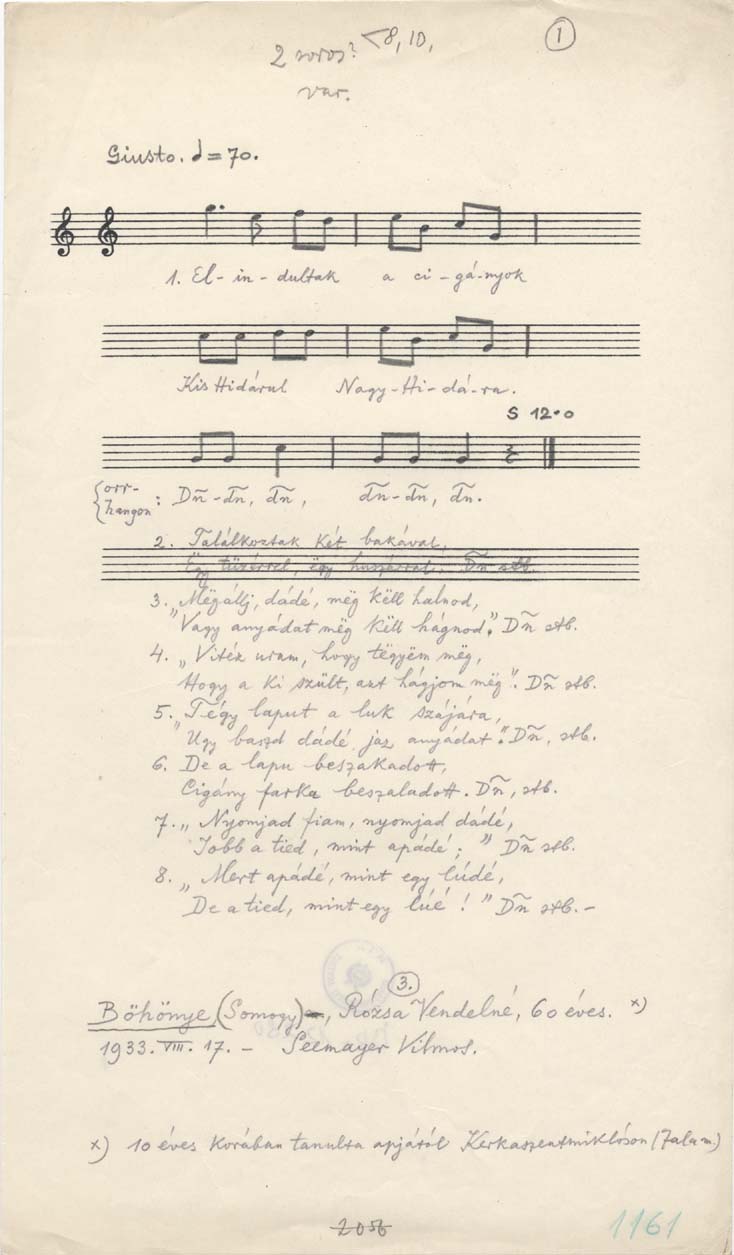 2 soros? <8, 10,
①
var.
Giusto. 𝅗𝅥 = 70.
1. El- in- dultak a ci-gá-nyok
Kis Hidárul Nagy-Hi-dá-ra.
S 12.0
{orr-
hangon : Dn̄-dn̄, dn̄, dn̄-dn̄, dn̄.
2. Találkoztak két bakával,
Ëgy tüzérrel, ëgy huszárral. Dn̄ stb.
3. „Mëgállj, dádé, mëg këll halnod,
Vagy anyádat mëg këll hágnod." Dn̄ stb.
4. „Vitéz uram, hogy tëgyëm mëg,
Hogy a ki szült, azt hágjom mëg". Dn̄ stb.
5. „Tégy laput a luk szájára,
Ugy baszd dádé jaz anyádat". Dn̄, stb.
6. De a lapu beszakadott,
Cigány farka beszaladott. Dn̄, stb.
7. „Nyomjad fiam, nyomjad dádé,
Jobb a tied, mint apádé; " Dn̄ stb.
8. „Mert apádé, mint egy lúdé,
De a tied, mint egy lúé! " Dn̄ stb. –
③
Böhönye (Somogy), Rózsa Vendelné, 60 éves. x)
1933. VIII. 17. – Seemayer Vilmos.
x) 10 éves korában tanulta apjától Kerkaszentmiklóson (Zala m.)
2056
1161